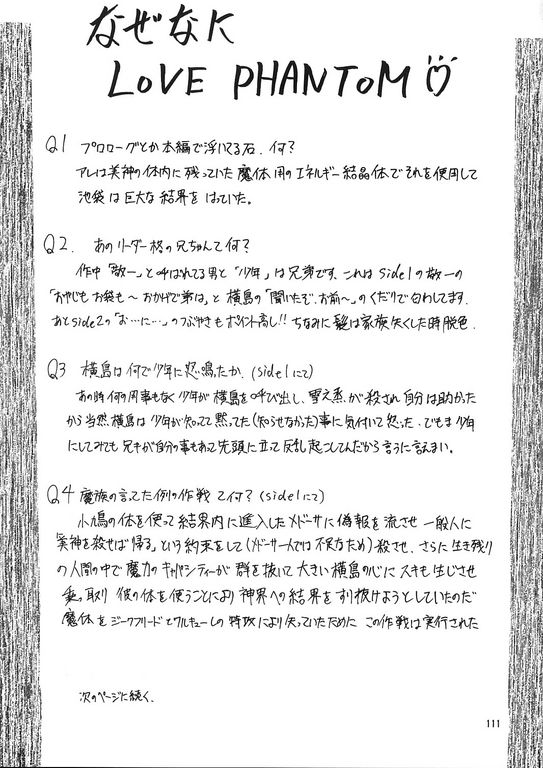 なぜなに
LOVE PHANTOM
Q1 プロローグとか本編で浮いてる石. 何?
アレは美神の体内に残っていた魔体用のエネルギー結晶体でそれを使用して
池袋は巨大な結界をはっていた。
Q2. あのリーダー格の兄ちゃんて何?
作中「敬一」と呼ばれてる男と「少年」は兄弟です.これはside1の敬一の
「おやじもお袋も〜おかげで弟は」と横島の「聞いたぞ.お前〜」のくだりで匂わしてます.
あとside2の「お…に…」のつぶやきもポイント高し!! ちなみに髪は家族失くした時脱色.
Q3 横島は何で少年に怒鳴ったか.(side1にて)
あの時何の用事もなく少年が横島を呼び出し、雪之丞が殺され自分は助かった
から当然横島は少年が知ってて黙ってた(知らせなかった)事に気付いて怒った.でもま少年
にしてみても兄キが自分の事もあって先頭に立って反乱起こしてんだから言うに言えまい。
Q4 魔族の言ってた例の作戦て何?(side1にて)
小鳩の体を使って結界内に進入したメドーサに偽報を流させ一般人に
「美神を殺せば帰る」という約束をして(メドーサ一人では不足なため)殺させ、さらに生き残り
の人間の中で魔力のキャパシティーが群を抜いて大きい横島の心にスキも生じさせ
乗っ取り 彼の体を使うことにより神界への結界をすり抜けようとしていたのだ
魔体をジークフリードとワルキューレの特攻により失っていたために この作戦は実行された
次のページに続く.
111